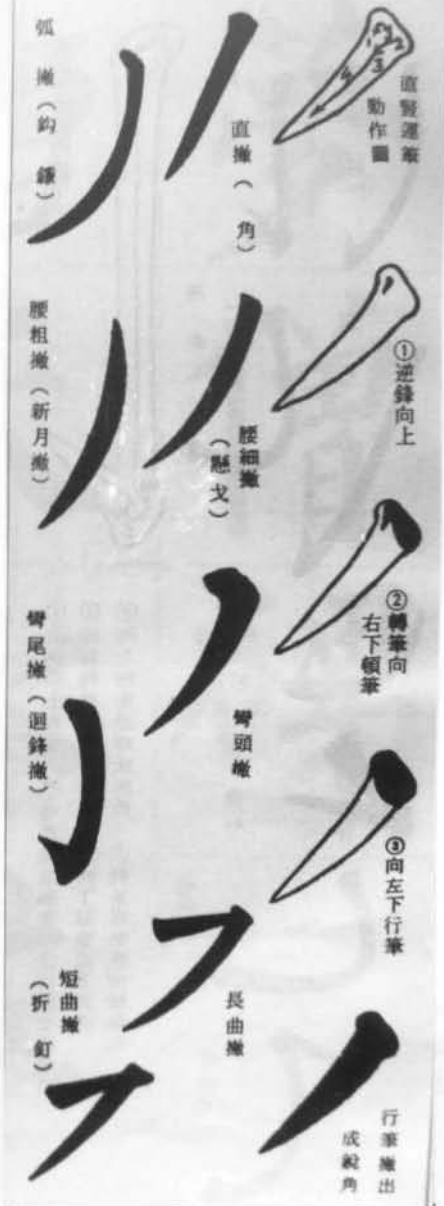 直豎運筆
動作圖
5
1
2
3
4
①逆鋒向上
②轉筆向
右下頓筆
③向左下行筆
行筆撇出
成銳角
直撇（ 角）
腰細撇
（懸戈）
彎頭撇
長曲撇
弧撇（鈎鐮）
腰粗撇（新月撇）
彎尾撇（迴鋒撇）
短曲撇
（折釘）